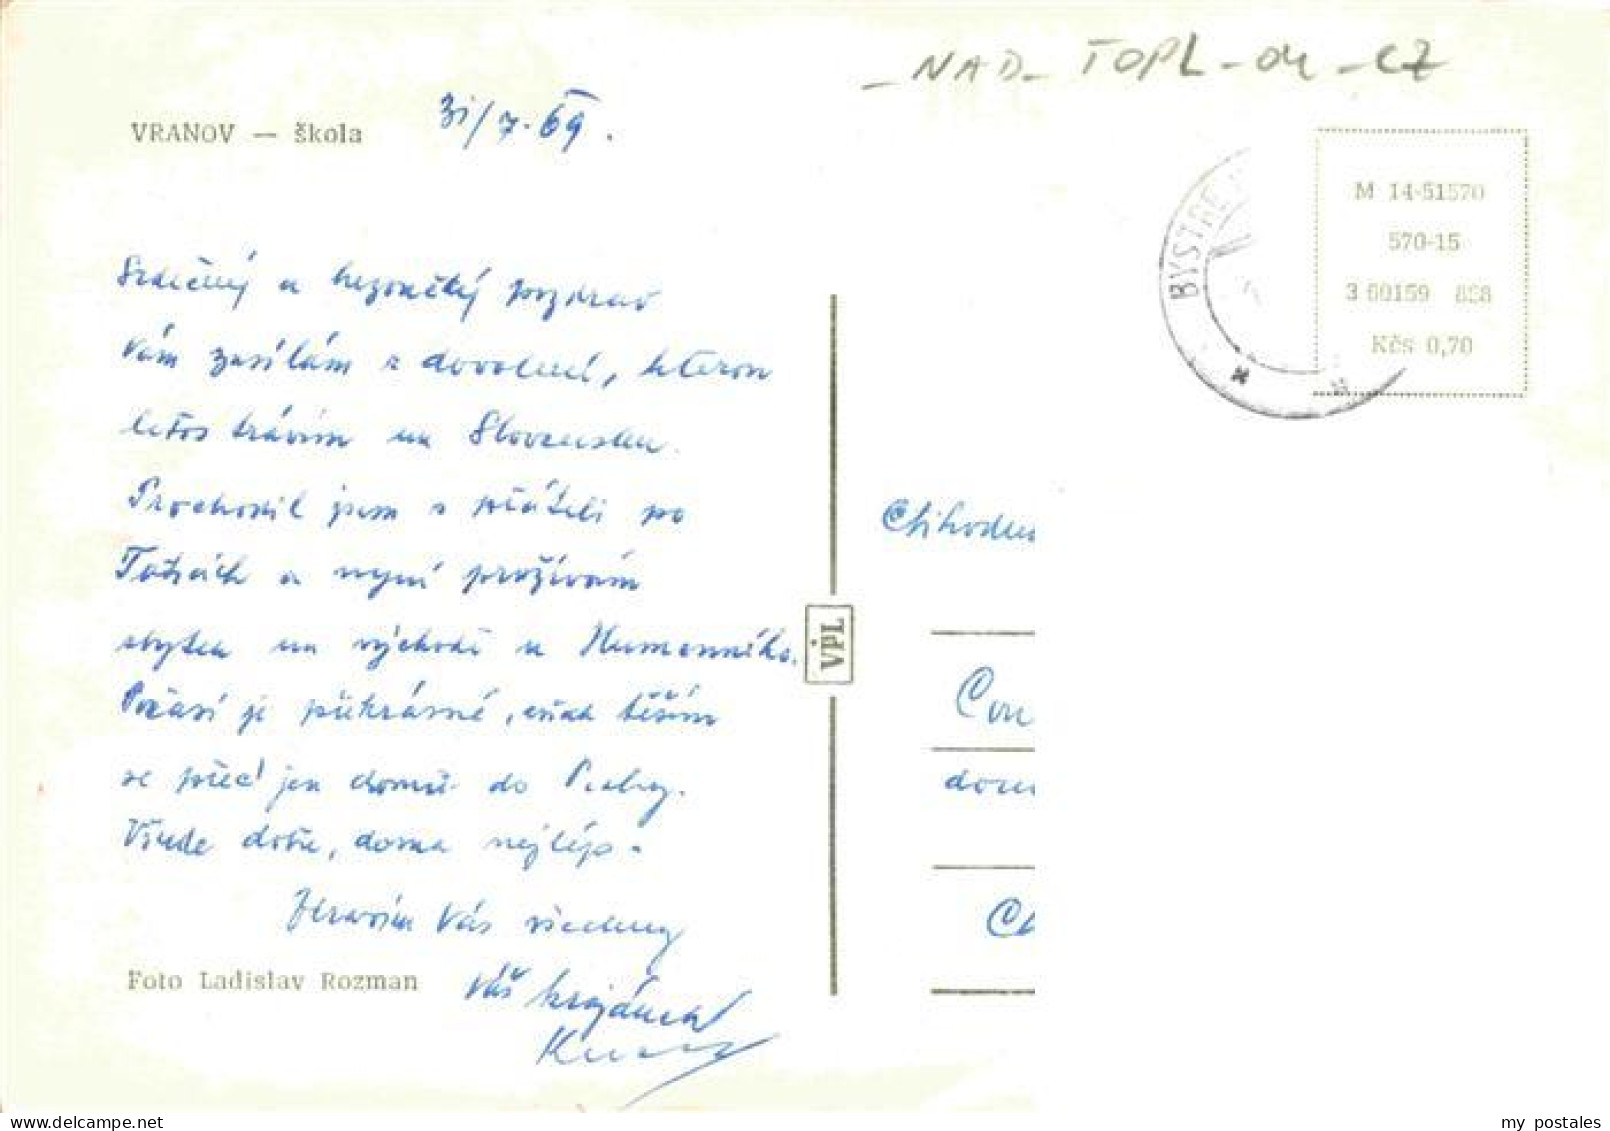 _ NAD_ TOPL - OU - CZ
VRANOV — škola
31/7.69.
M 14-51570
570-15
3 60159 858
Kčs 0,70
BYSTRE
Srdečný a
pozdrav
Vám zasílám z dovolené, kterou
letos trávím na Slovensku.
Prochodil jsem s přáteli po
Tatrách a nyní prožívám
zbytek na východě u Humenného.
Počasí je překrásné, však těším
se přec jen domů do Prahy.
Všude dobře, doma nejlép.
Zdravím Vás všechny
Váš krajánek
Foto Ladislav Rozman
VPL
Ctihodn
Con
dom
Ch
my postales